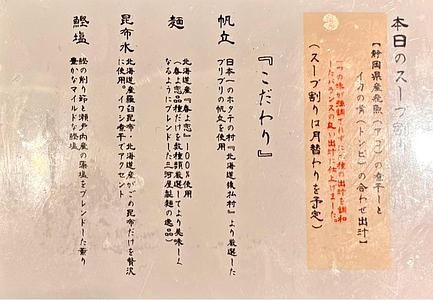 本日のスープ割り
【静岡県産飛魚(アゴ)の煮干しと
イカの嘴(トンビ)の合わせ出汁】
の味が強調されずに 種の出汁を調和
したバランスの良い出汁に仕上げました。
(スープ割りは月替わりを予定)
『こだわり』
帆立
日本一のホタテの村『北海道猿払村』より厳選した
プリプリの帆立を使用
麺
北海道産『春よ恋』100%使用
(春よ恋品種だけを数種類厳選してより美味しく
なるようにブレンドした三河屋製麺の逸品)
昆布水
北海道産羅臼昆布・北海道産がごめ昆布だけを贅沢
に使用。イワシ煮干でアクセント
鰹塩
鰹の削り節と瀬戸内産の藻塩をブレンドした薫り
豊かなマイルドな鰹塩